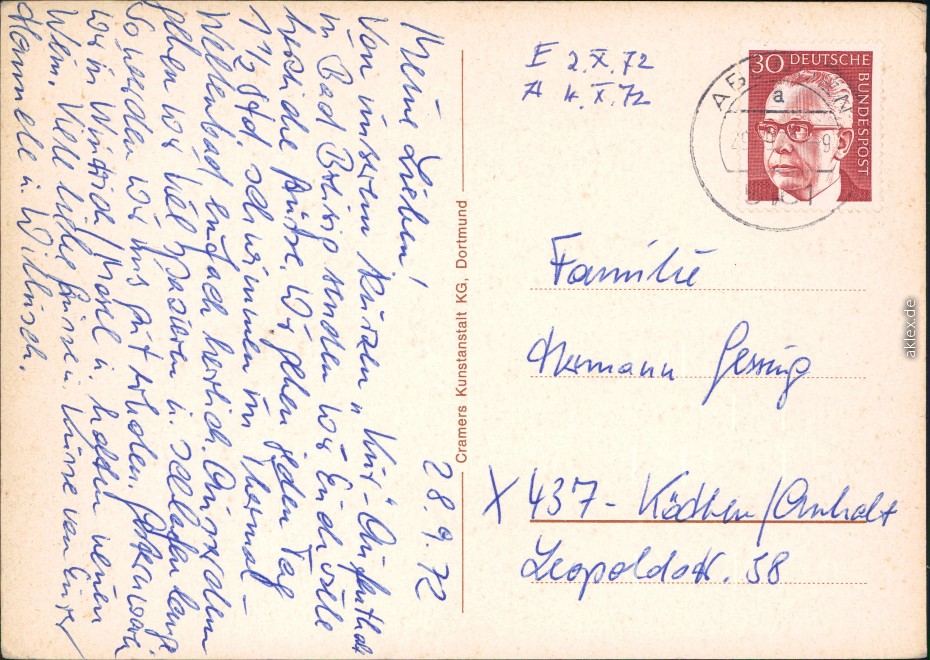 28.9.72
Meine Lieben!
Von unserem kurzen "Kur"-Aufenthalt
in Bad Breisig senden wir Euch viele
herzliche Grüsse. Wir gehen jeden Tag
1 1/2 Std. schwimmen im Thermal-
Wellenbad, einfach herrlich. Ausserdem
gehen wir viel spazieren u. schlafen lange
So werden wir uns gut erholen. Gestern waren
wir in /Mosel u. hatten neuen
Wein. Viele liebe Grüsse u. Küsse von Eurer
Hannele u. Willusch.
Cramers Kunstanstalt KG, Dortmund
E 2.X.72
A 4.X.72
30 DEUTSCHE
BUNDESPOST
a
Familie
Hermann Gessing
X 437 - Köthen/Anhalt
Leopoldstr. 38
aklex.de